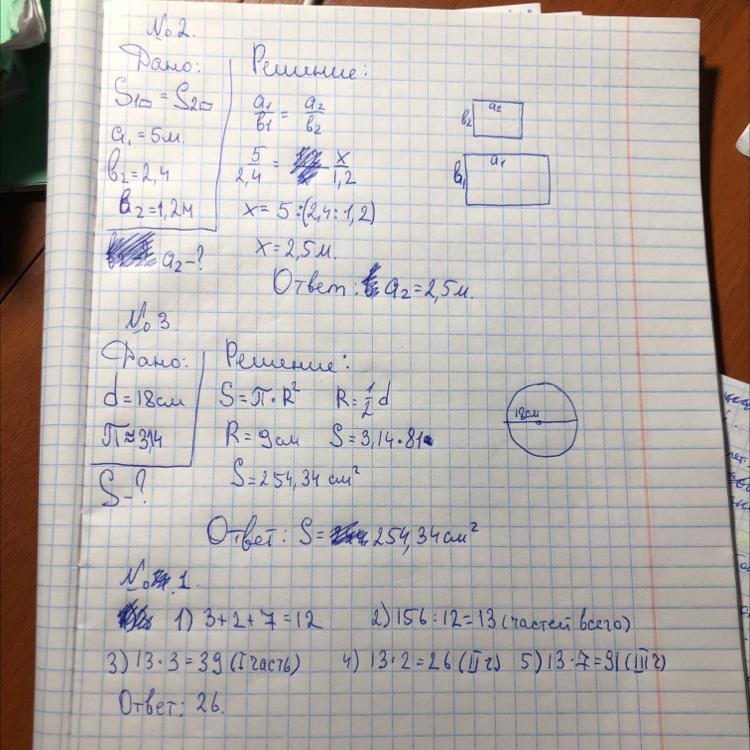 №2.
Дано:
S1▭ = S2▭
a1 = 5м.
b2 = 2,4
b2 = 1,2м
a2 - ?
Решение:
a1/b1 = a2/b2
5/2,4 = x/1,2
x = 5 : (2,4 : 1,2)
x = 2,5м.
Ответ: a2 = 2,5м.
b2 a2
b1 a1
№3
Дано:
d = 18см
π ≈ 3,14
S - ?
Решение:
S = π · R² R = 1/2 d
R = 9см S = 3,14 · 81
S = 254,34 см²
18см
Ответ: S = 254,34 см²
№ 1.
1) 3+2+7=12 2) 156 : 12 = 13 (частей всего)
3) 13 · 3 = 39 (I часть) 4) 13 · 2 = 26 (II ч) 5) 13 · 7 = 91 (III ч)
Ответ: 26.